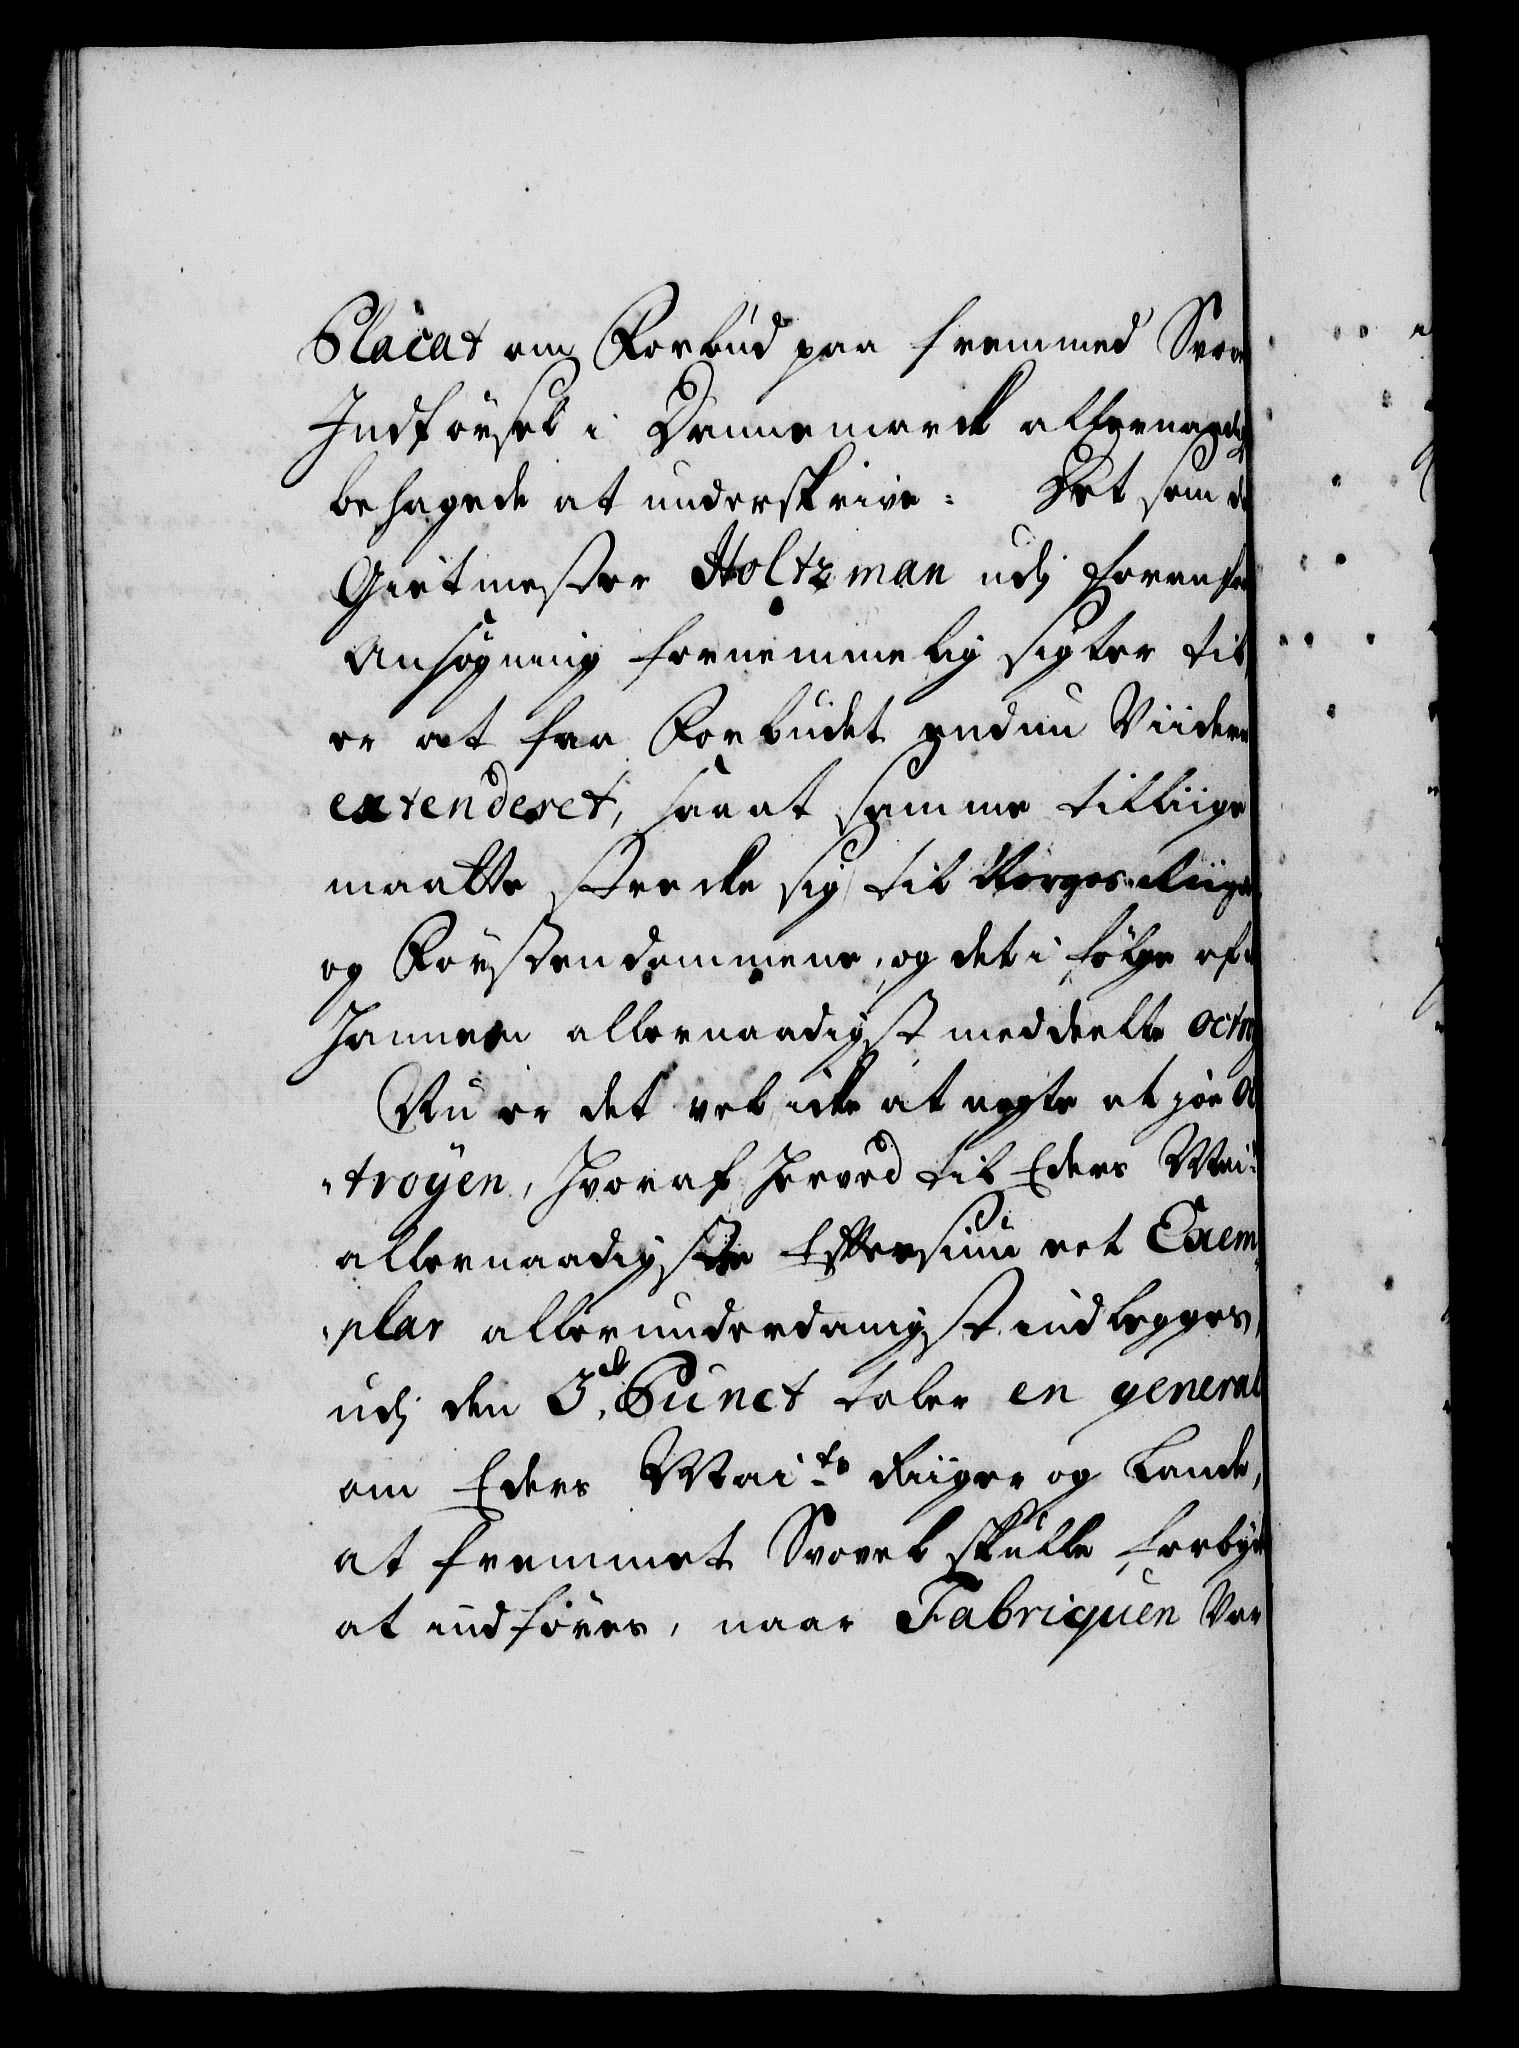 Placat om Forbud paa fremmed Svov
Indförsel i Dannemarck allernaadig
behagede at underskrive: Det som
Giertmester Holtzman udj
Ansögning fornemmelig sigter til,
er at faa Forbudet endnu Viidere
extenderet, saa at samme tilliige
maatte strecke sig til Norges Riige
og Förstendommene, og det i fölge af
Hannem allernaadigst meddeelte octroj
Nu er det vel icke at negte at jo Oc
"troyen, hvoraf herved til Eders Mai:
allernaadigste Eftersiun et Exem
"plar allerunderdanigst indlegges,
udj den 3de Punct taler en general
om Eders Maits Riiger og Lande,
at fremmet Svovel skulle forbyde
at indföres, naar Fabriquen Var